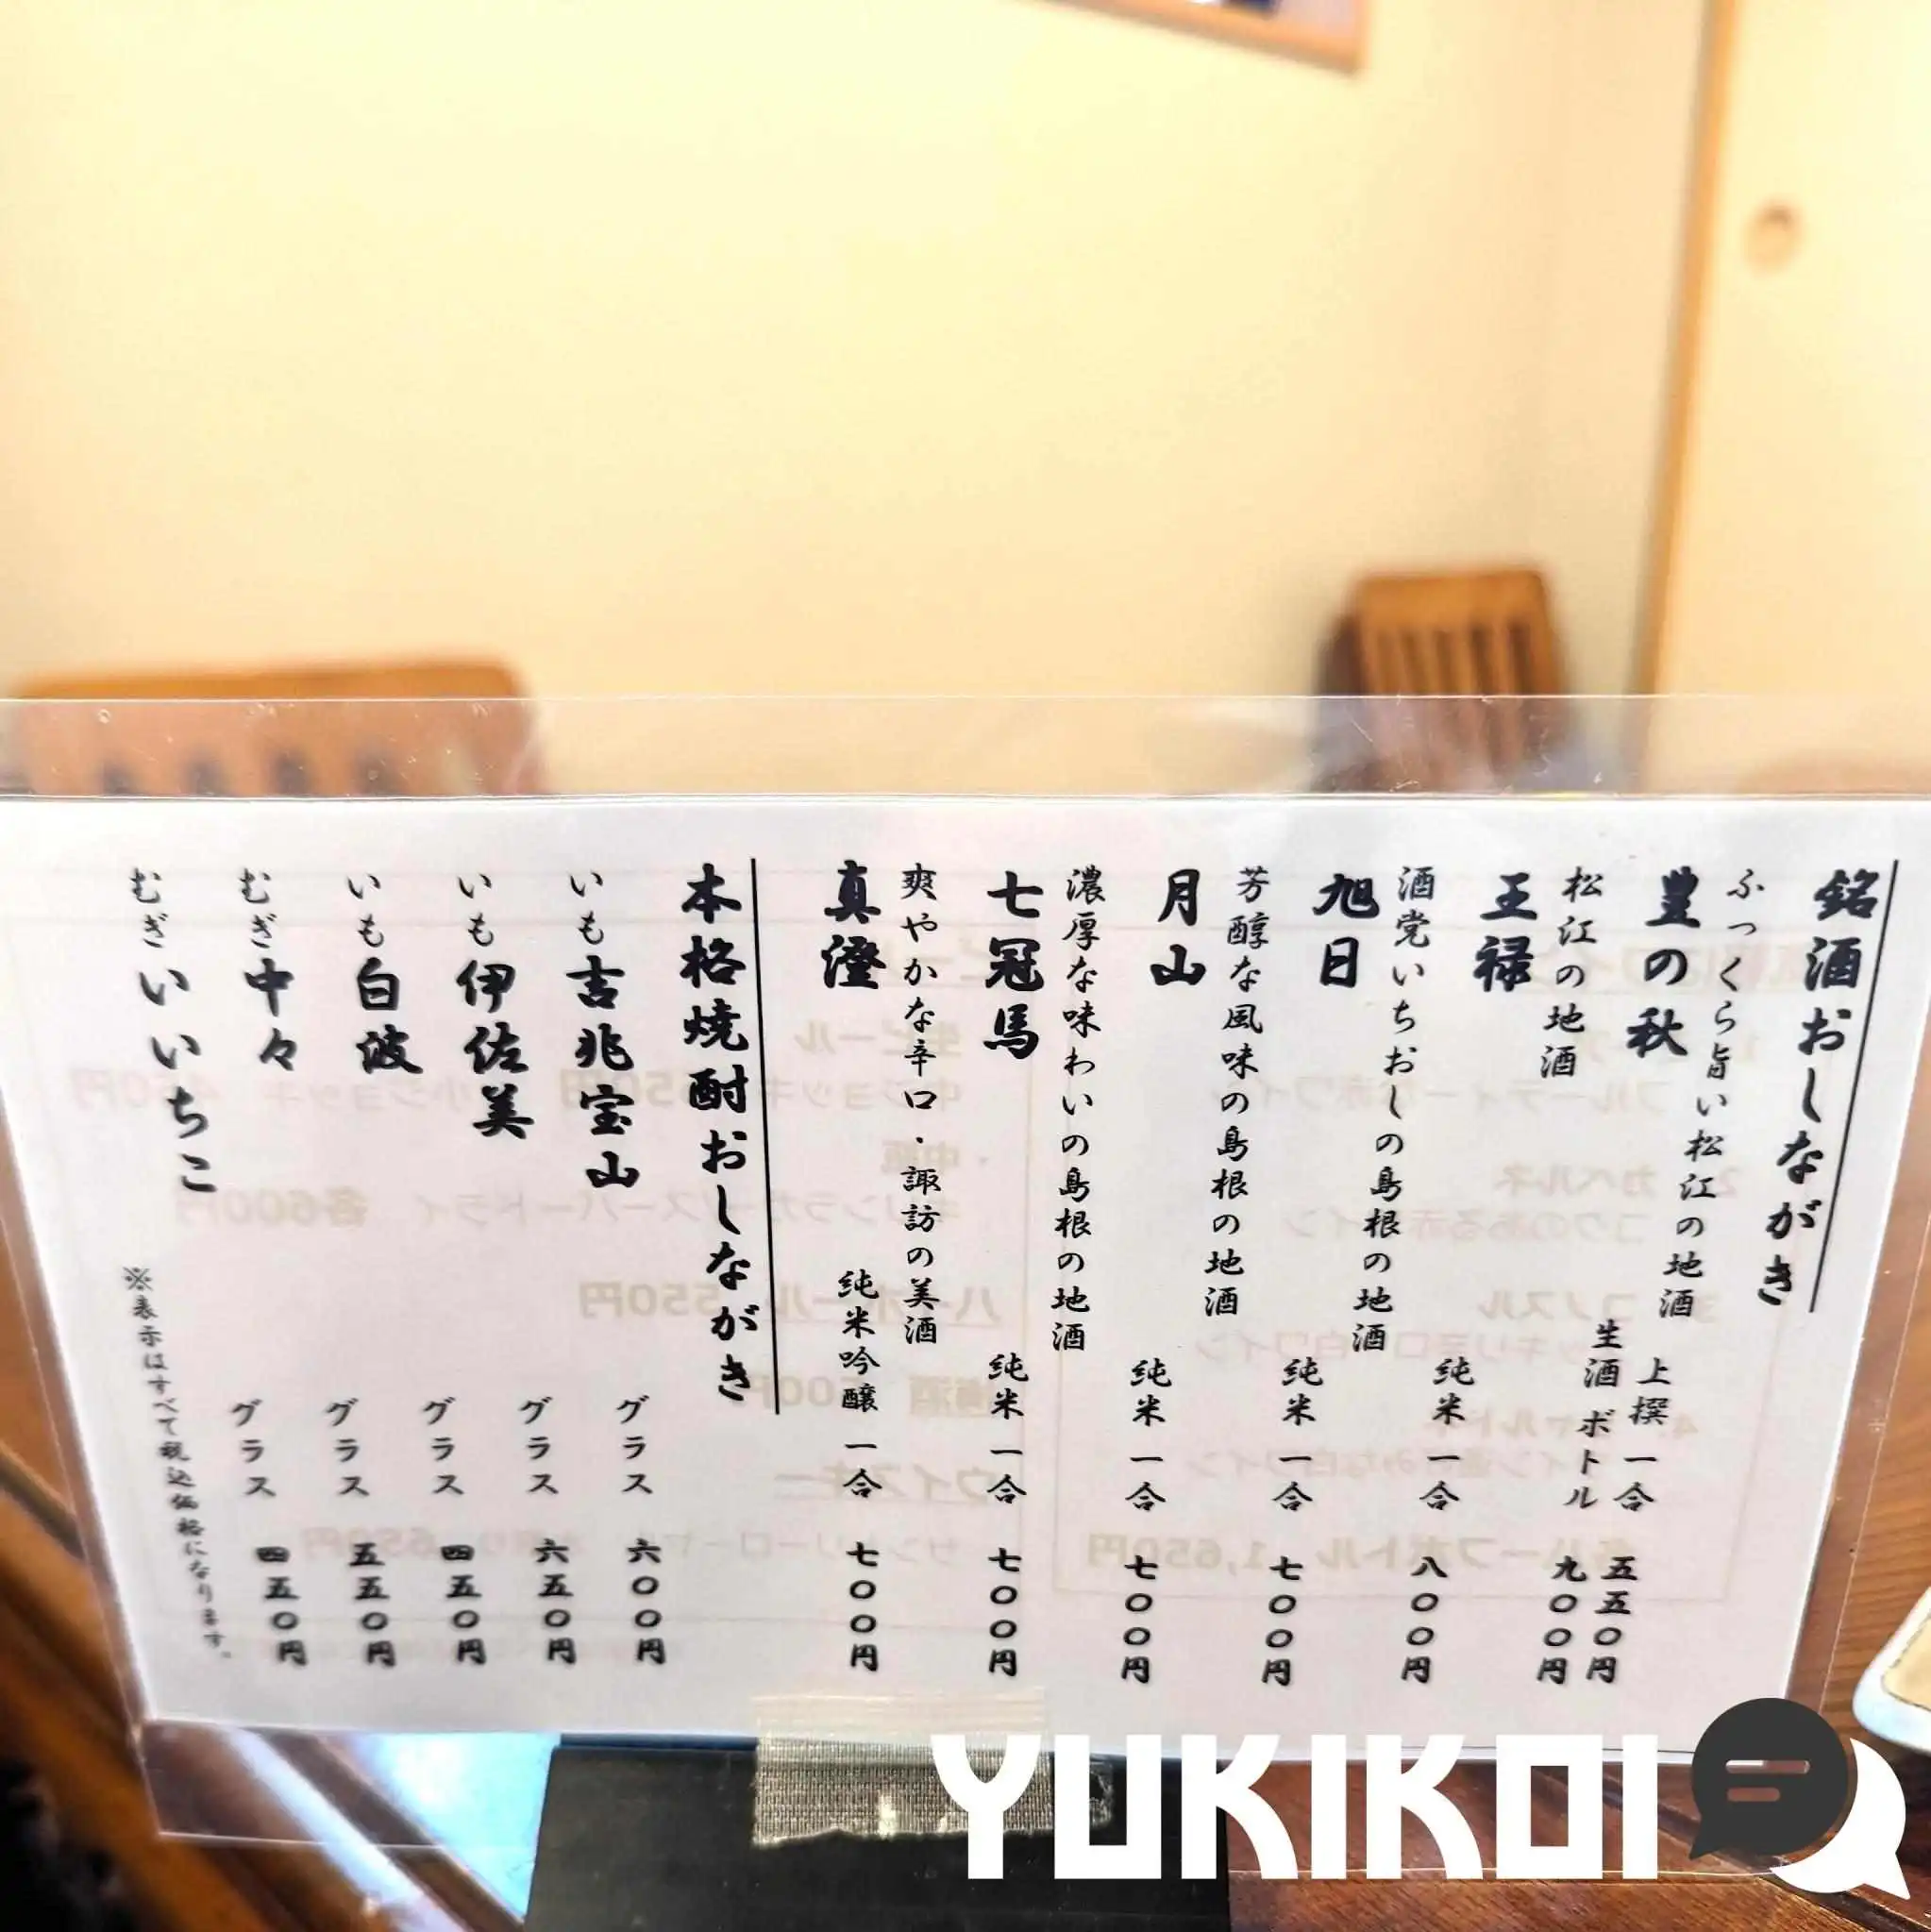 銘酒おしながき
ふっくら旨い松江の地酒
豊の秋 上撰 一合 五五〇円
生酒 ボトル 九〇〇円
松江の地酒
王禄 純米 一合 八〇〇円
酒党いちおしの島根の地酒
旭日 純米 一合 七〇〇円
芳醇な風味の島根の地酒
月山 純米 一合 七〇〇円
濃厚な味わいの島根の地酒
七冠馬 純米 一合 七〇〇円
爽やかな辛口・諏訪の美酒
真澄 純米吟醸 一合 七〇〇円
本格焼酎おしながき
いも吉兆宝山 グラス 六〇〇円
いも伊佐美 グラス 六五〇円
いも白波 グラス 四五〇円
むぎ中々 グラス 五五〇円
むぎいいちこ グラス 四五〇円
※表示はすべて税込価格になります。
YUKIKOI